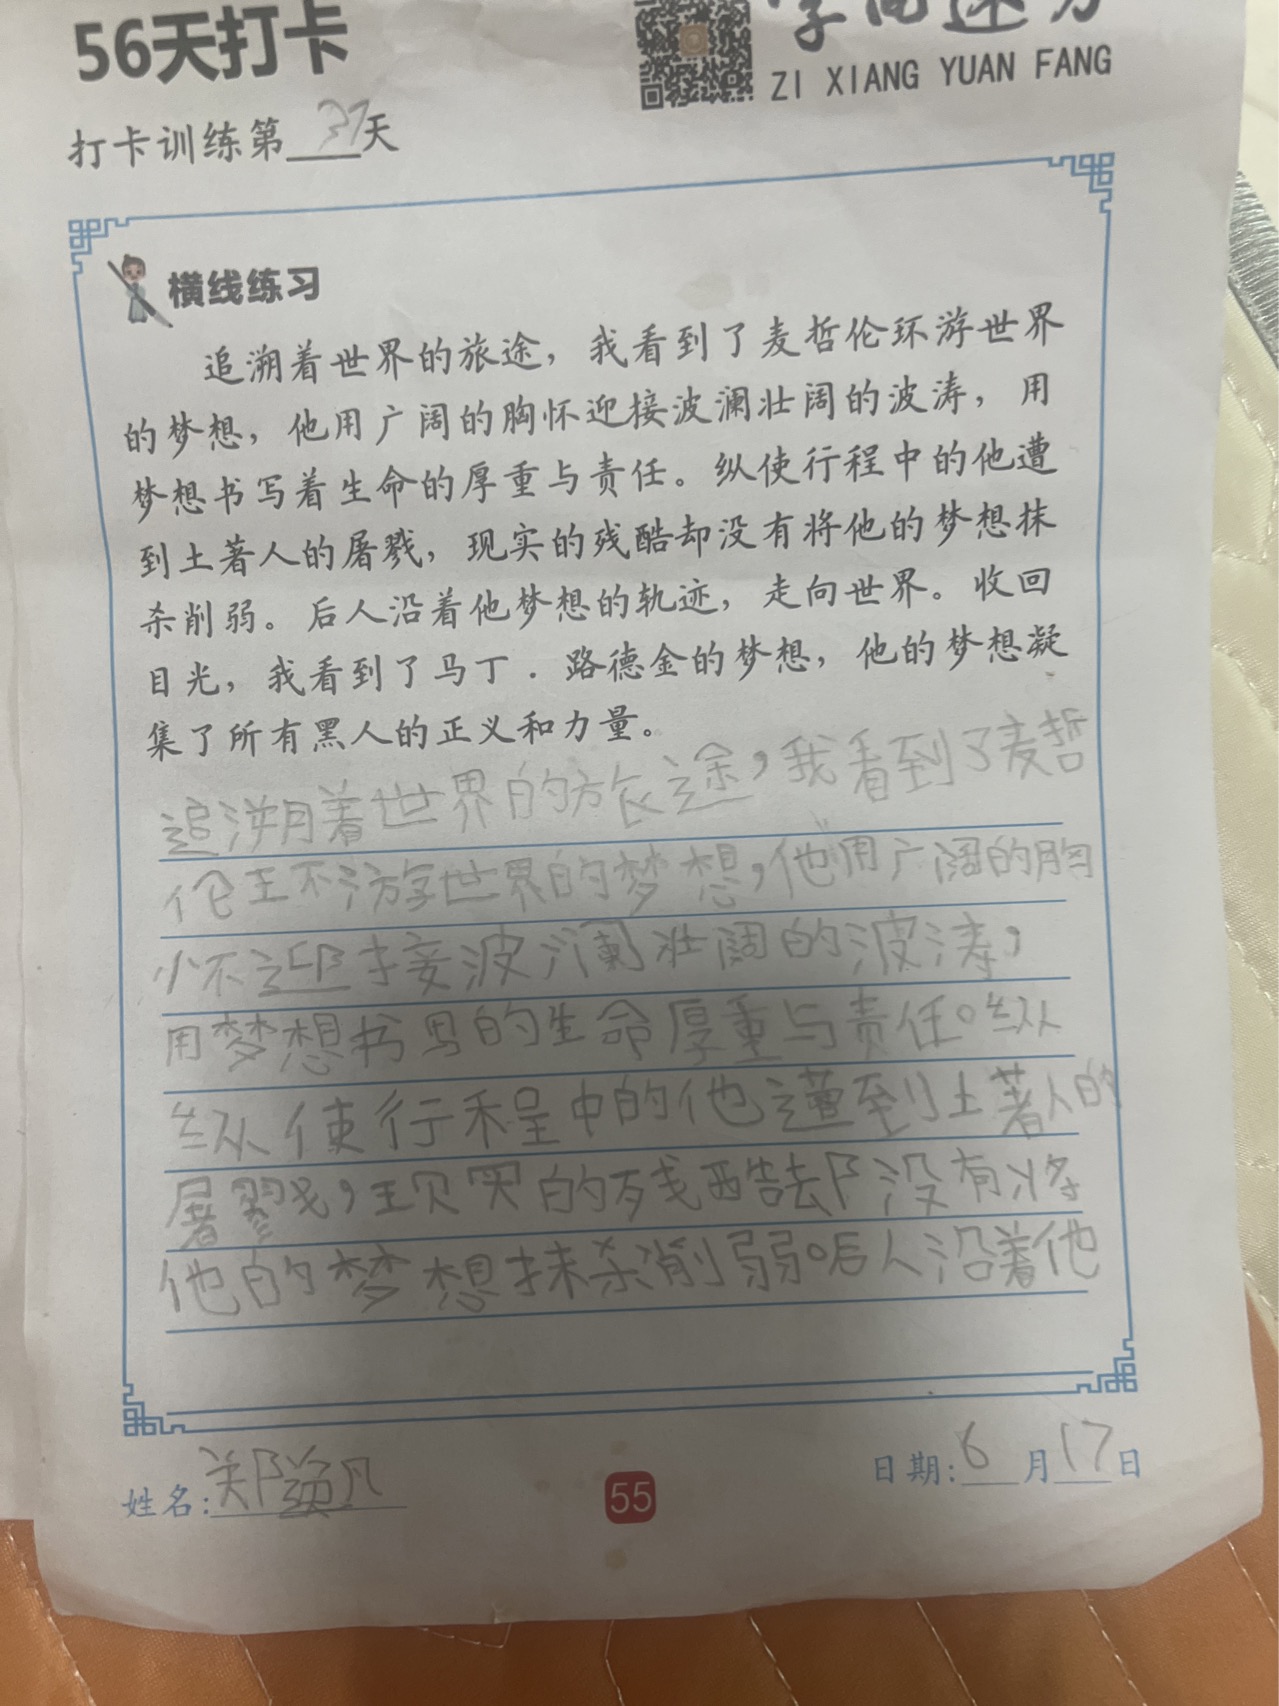 56天打卡
ZI XIANG YUAN FANG
打卡训练第37天
横线练习
追溯着世界的旅途，我看到了麦哲伦环游世界
的梦想，他用广阔的胸怀迎接波澜壮阔的波涛，用
梦想书写着生命的厚重与责任。纵使行程中的他遭
到土著人的屠戮，现实的残酷却没有将他的梦想抹
杀削弱。后人沿着他梦想的轨迹，走向世界。收回
目光，我看到了马丁．路德金的梦想，他的梦想凝
集了所有黑人的正义和力量。
追溯着世界的旅途，我看到了麦哲
伦环游世界的梦想，他用广阔的胸
怀迎接波澜壮阔的波涛，
用梦想书写的生命厚重与责任。纵
纵使行程中的他遭到土著人的
屠戮，现实的残酷却没有将
他的梦想抹杀削弱。后人沿着他
姓名：郑 凡
55
日期：6月17日